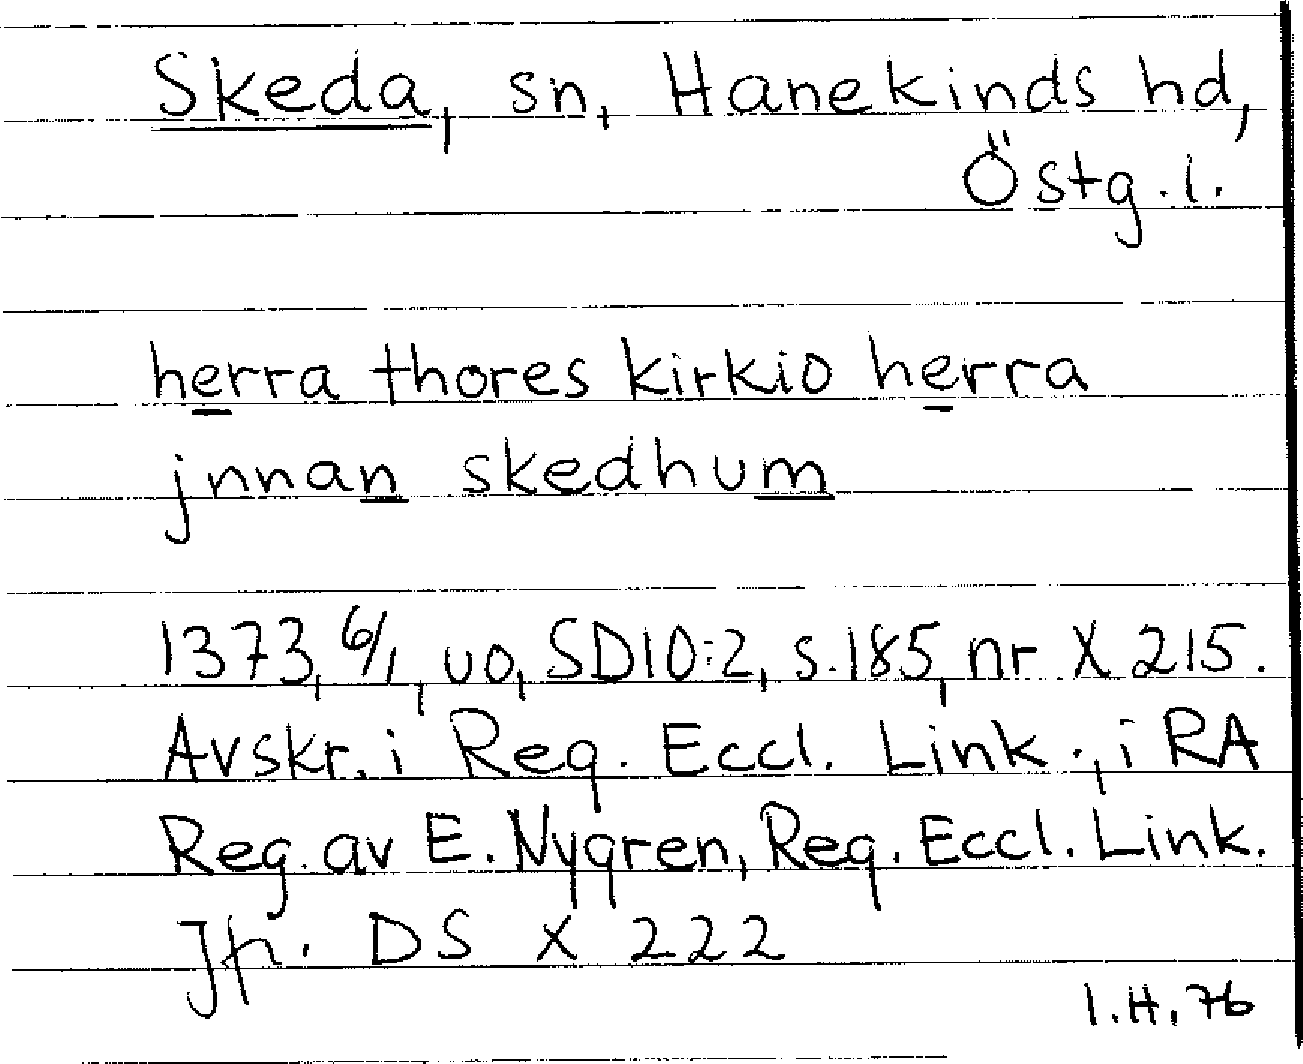 Skeda, sn, Hanekinds hd,
Östg.l.
herra thores kirkio herra
jnnan skedhum
1373, 6/1, uo, SD10:2, s.185, nr X 215.
Avskr. i Reg. Eccl. Link., i RA
Reg. av E. Nygren, Reg. Eccl. Link.
Jfr. DS X 222
I.H. 76